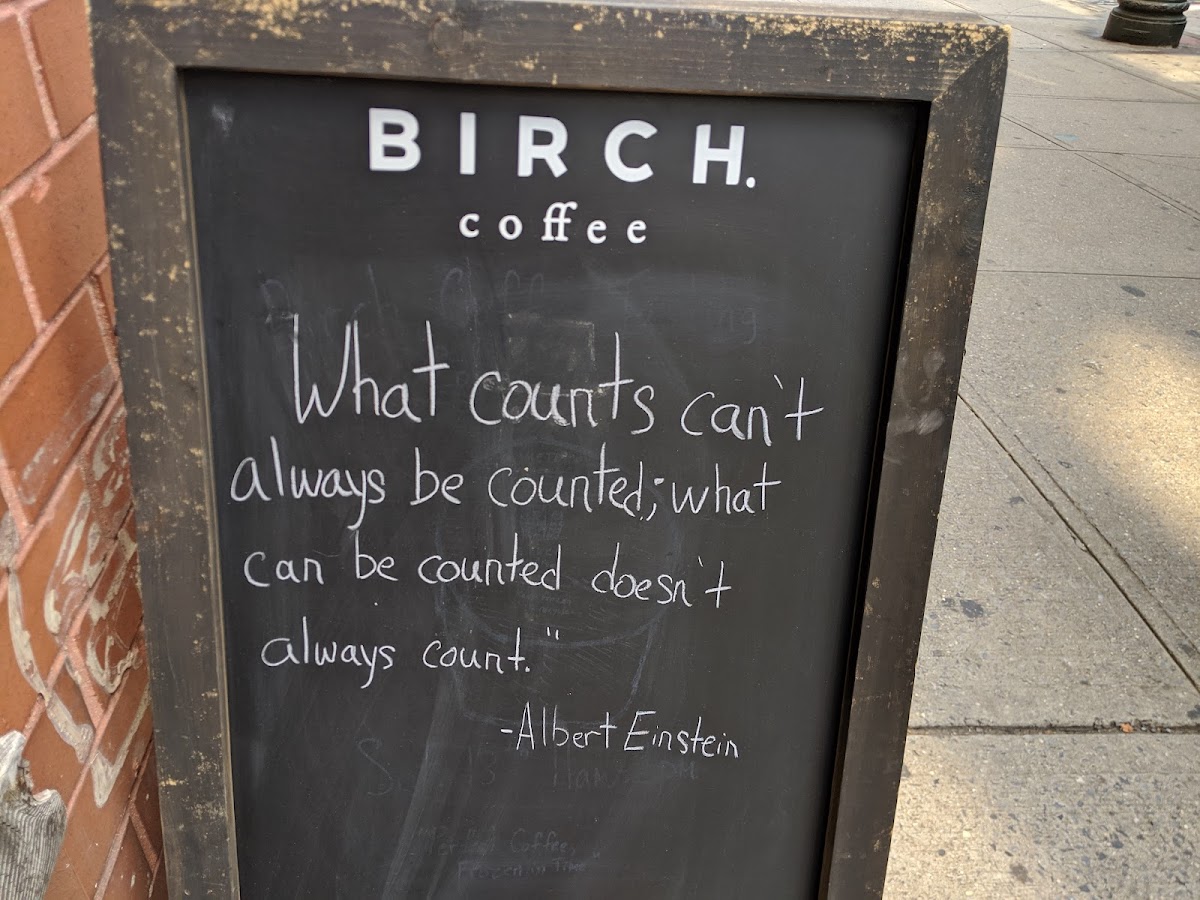 BIRCH.
coffee
What counts can't
always be counted; what
can be counted doesn't
always count."
-Albert Einstein
Coffee,